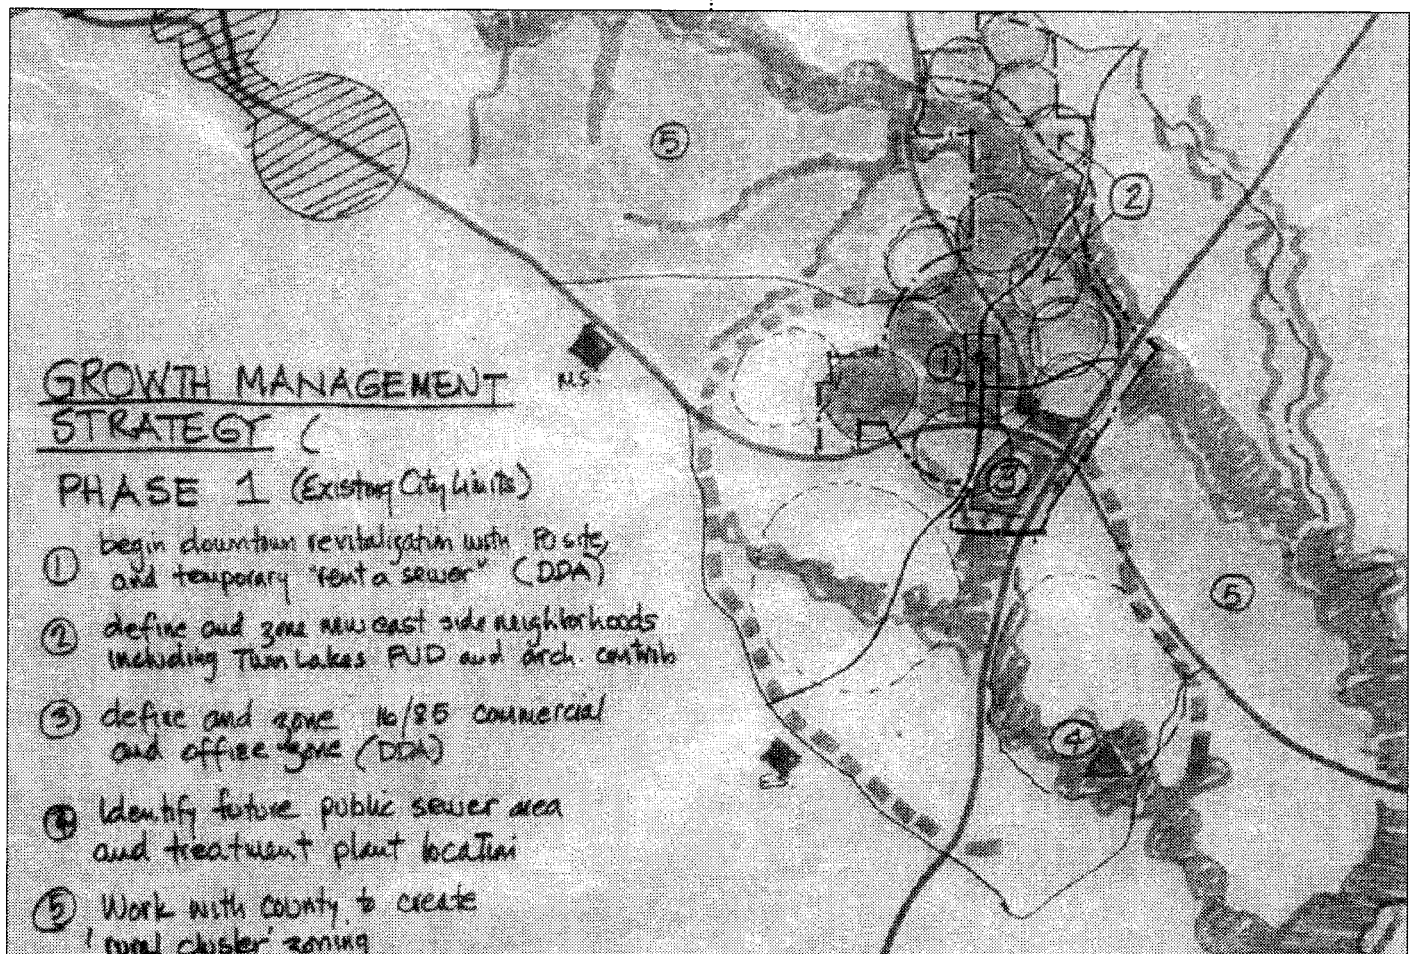 GROWTH MANAGEMENT
STRATEGY (
PHASE 1 (Existing City Limits)
① begin downtown revitalization with PO site,
and temporary "rent a sewer" (DDA)
② define and zone new east side neighborhoods
including Twin Lakes PUD and arch. controls
③ define and zone 16/85 commercial
and office zone (DDA)
④ Identify future public sewer area
and treatment plant location
⑤ Work with county to create
'rural cluster' zoning
⑤
②
M.S.
①
③
⑤
④
E.S.